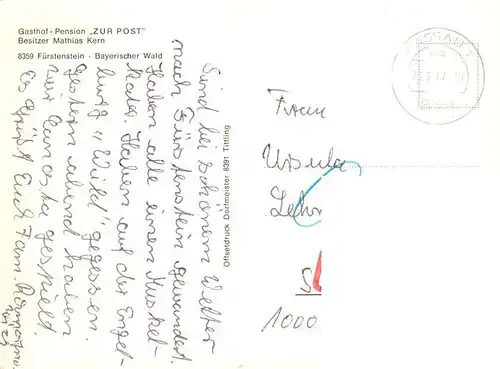 Gasthof-Pension „ZUR POST"
Besitzer Mathias Kern
8359 Fürstenstein - Bayerischer Wald
Sind bei schönem Wetter
nach Fürstenstein gewandert.
Haben alle einen Muskel-
kater. Haben auf der Engel-
burg „Wild" gegessen.
Gestern abend haben
wir Canasta gespielt.
Es grüßt Euch Fam.
Offsetdruck Dorfmeister 8391 Tittling
PASSAU
Frau
Ursula
Lehr
1000